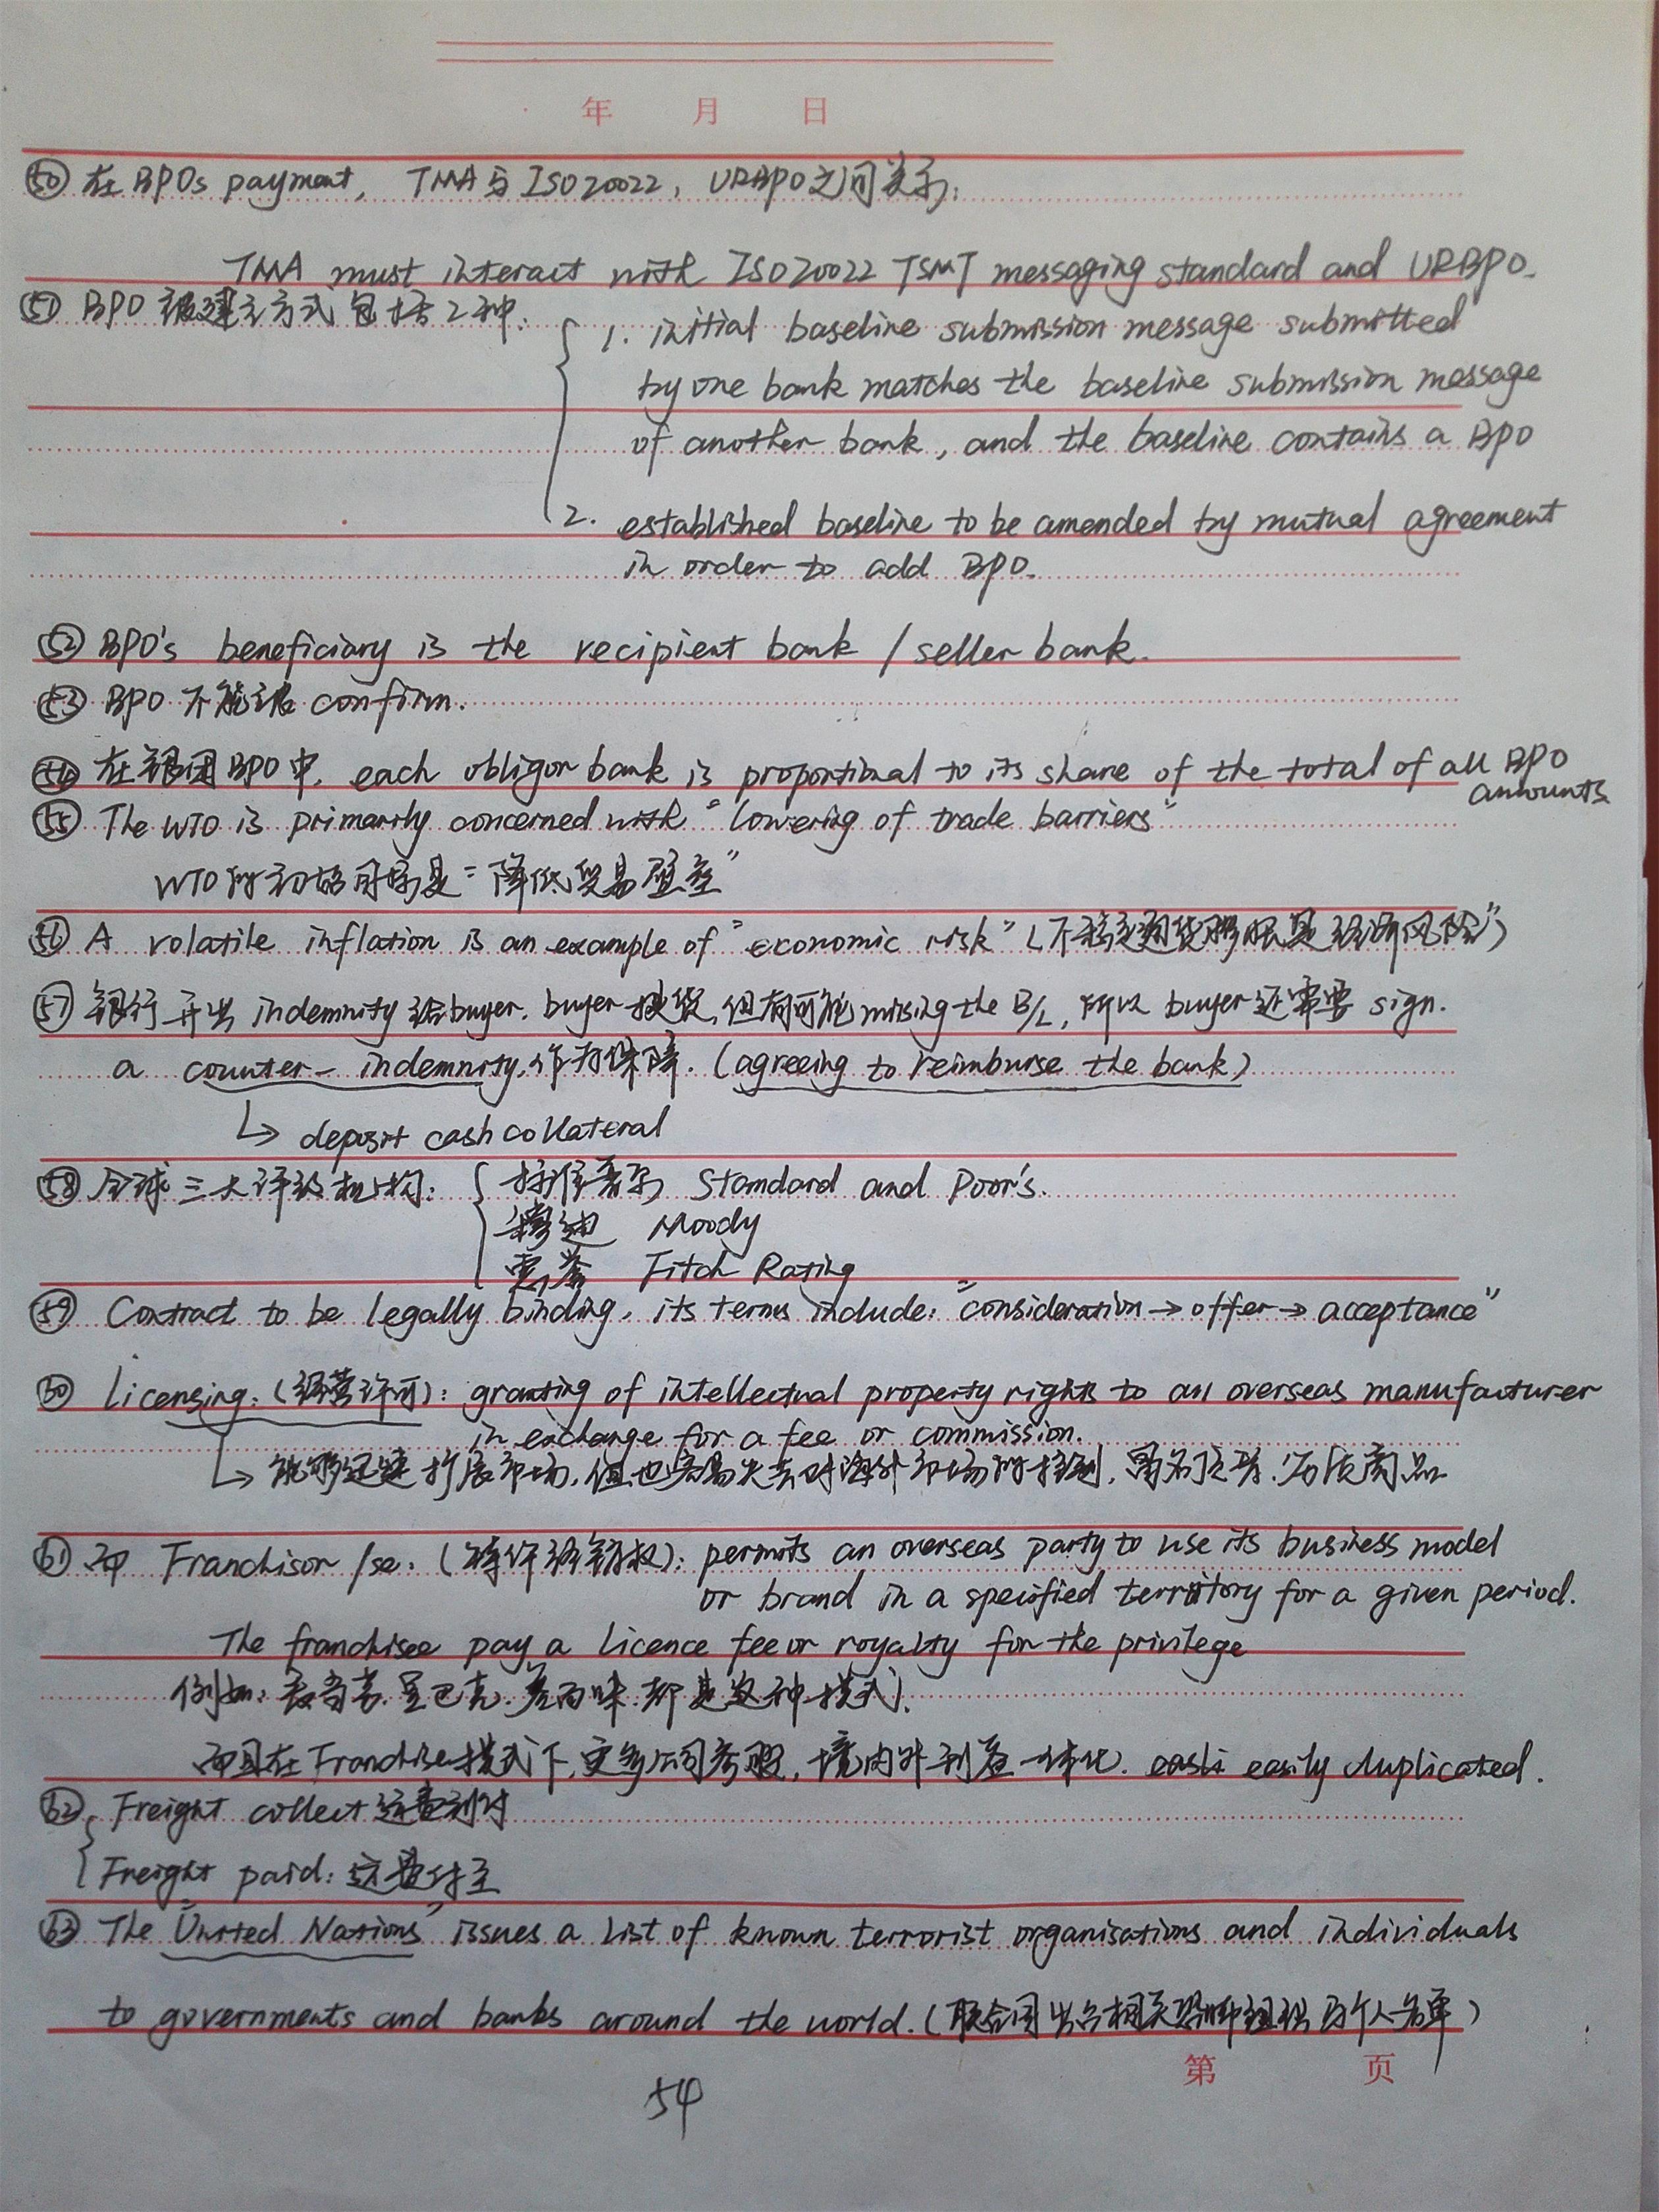 年 月 日
㊿ 在BPOs payment, TMA与ISO20022, URBPO之间关系:
TMA must interact with ISO20022 TSMT messaging standard and URBPO.
51 BPO被建立方式包括2种:
1. initial baseline submission message submitted
by one bank matches the baseline submission message
of another bank, and the baseline contains a BPO
2. established baseline to be amended by mutual agreement
in order to add BPO.
52 BPO's beneficiary is the recipient bank / seller bank.
53 BPO不能被confirm.
54 在银团BPO中, each obligor bank is proportional to its share of the total of all BPO
amounts
55 The WTO is primarily concerned with "lowering of trade barriers"
WTO的初始目标是"降低贸易壁垒"
56 A volatile inflation is an example of "economic risk" (不稳定通货膨胀是经济风险")
57 银行开出indemnity给buyer, buyer提货,但有可能missing the B/L, 所以buyer还需要sign.
a counter-indemnity,作为保障. (agreeing to reimburse the bank)
↳ deposit cash collateral
58 全球三大评级机构: 标准普尔 Standard and Poor's.
穆迪 Moody
惠誉 Fitch Rating
59 Contract to be legally binding, its terms include: "consideration→offer→acceptance"
60 Licensing: (经营许可): granting of intellectual property rights to an overseas manufacturer
in exchange for a fee or commission.
↳ 能够迅速扩展市场,但也容易失去对海外市场的控制, 劣质商品
61 而Franchisor /se: (特许经销权): permits an overseas party to use its business model
or brand in a specified territory for a given period.
The franchisee pay a licence fee or royalty for the privilege
例如: 麦当劳.星巴克.都是这种模式.
而且在Franchise模式下,更多公司参照,境内外利益一体化. easily duplicated.
62 Freight collect 运费到付
Freight paid: 运费付讫
63 The "United Nations" issues a list of known terrorist organisations and individuals
to governments and banks around the world. (联合国出台相关恐怖组织与个人名单)
第 页
54